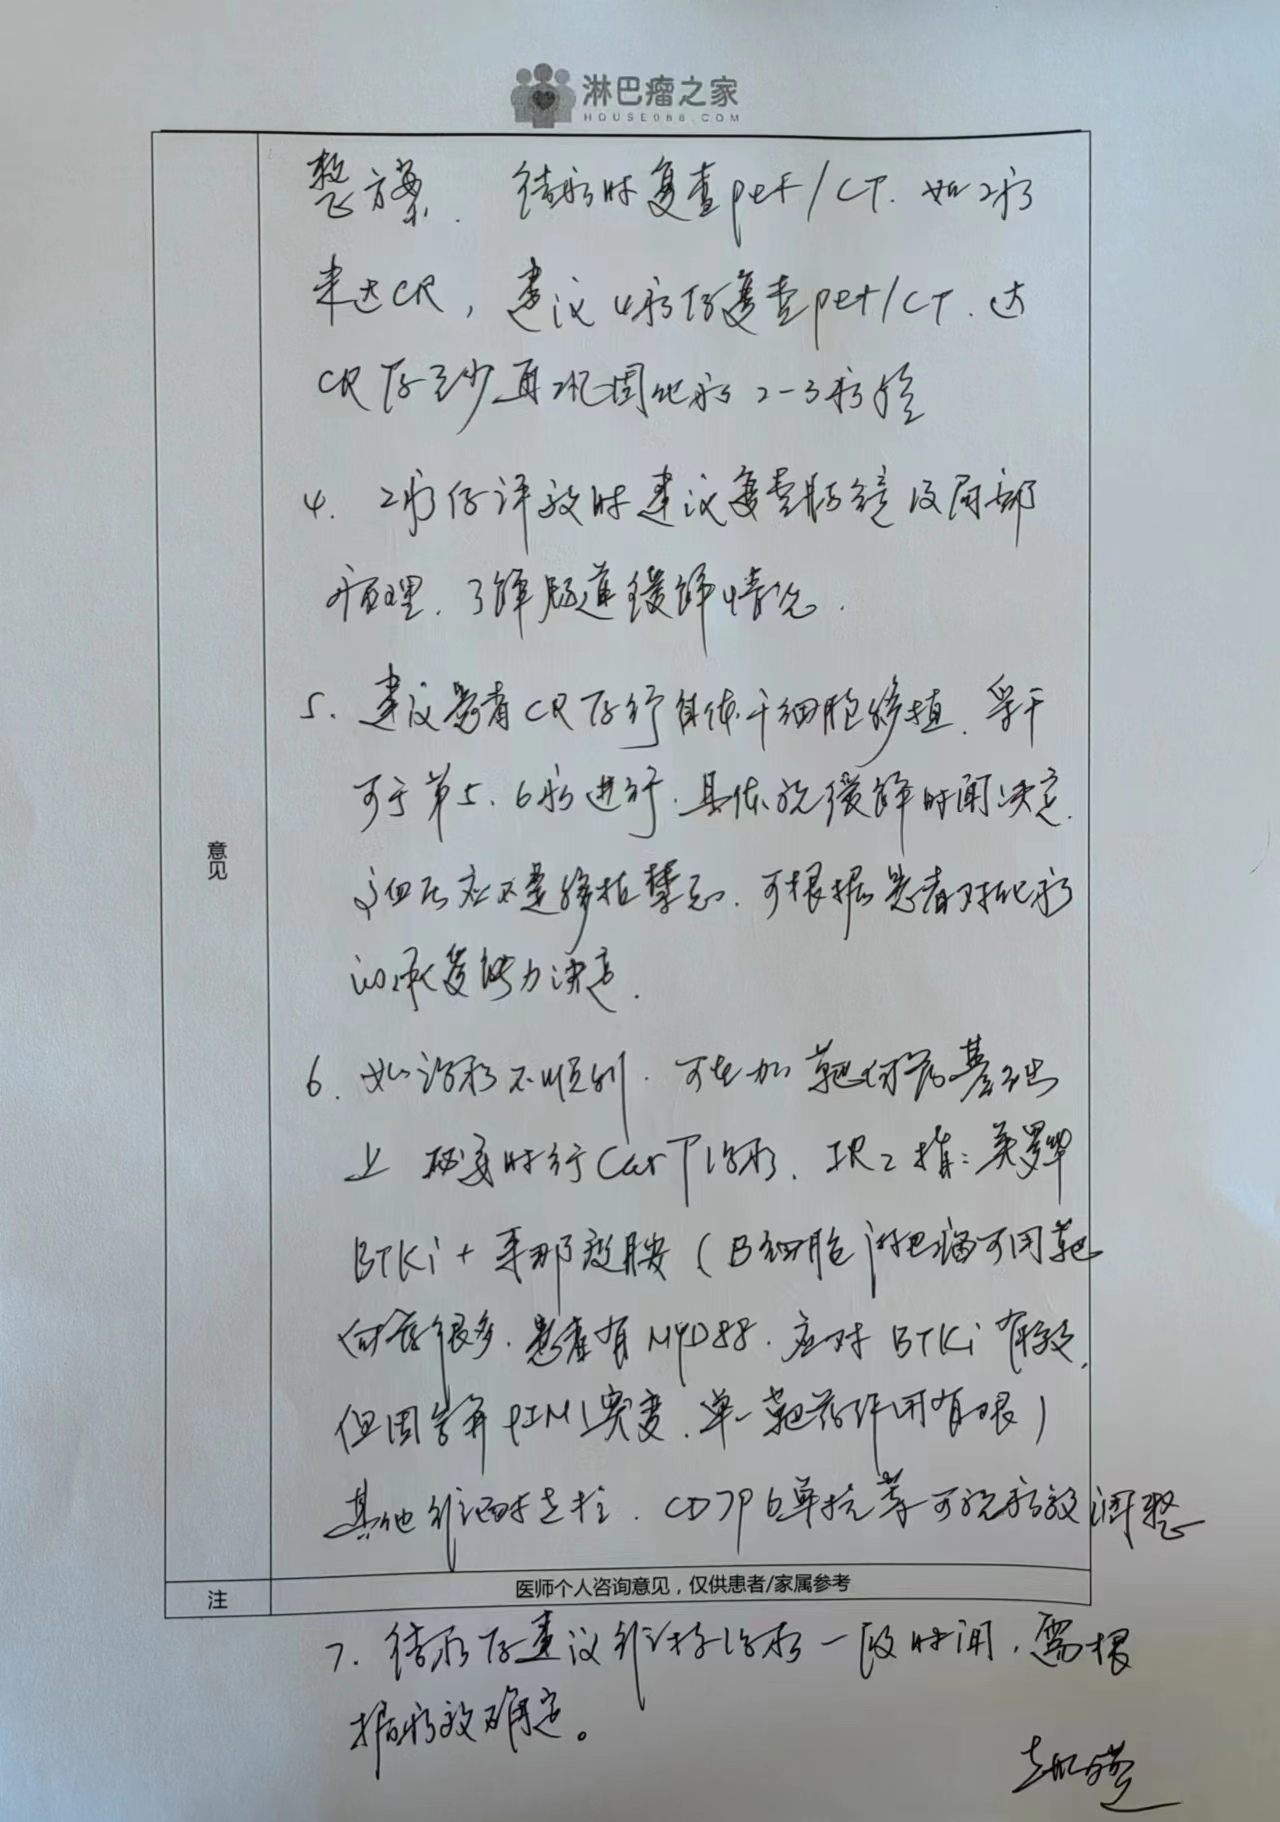 淋巴瘤之家
HOUSE086.COM
整方案. 结疗时复查pet/CT. 如2疗
未达CR, 建议4疗后复查pet/CT. 达
CR后至少再巩固化疗2-3疗程
4. 2疗后评效时建议复查肠镜及局部
病理. 了解肠道缓解情况.
5. 建议患者CR后行自体干细胞移植. 采干
可于第5、6疗进行. 具体视缓解时间决定.
不是移植禁忌. 可根据患者对化疗
的承受能力决定.
6. 如治疗不顺利. 可在加靶向药基础
上 必要时行CarT治疗. IR2指: 美罗华
BTKi + 来那度胺 (B细胞淋巴瘤可用靶
向药很多. 患者有MYD88. 应对BTKi有效.
但因合并PIM1突变. 单一靶药作用有限)
其他 CD79b单抗等可视疗效调整
意见
注
医师个人咨询意见，仅供患者/家属参考
7. 结疗后建议维持治疗一段时间, 需根
据疗效确定。